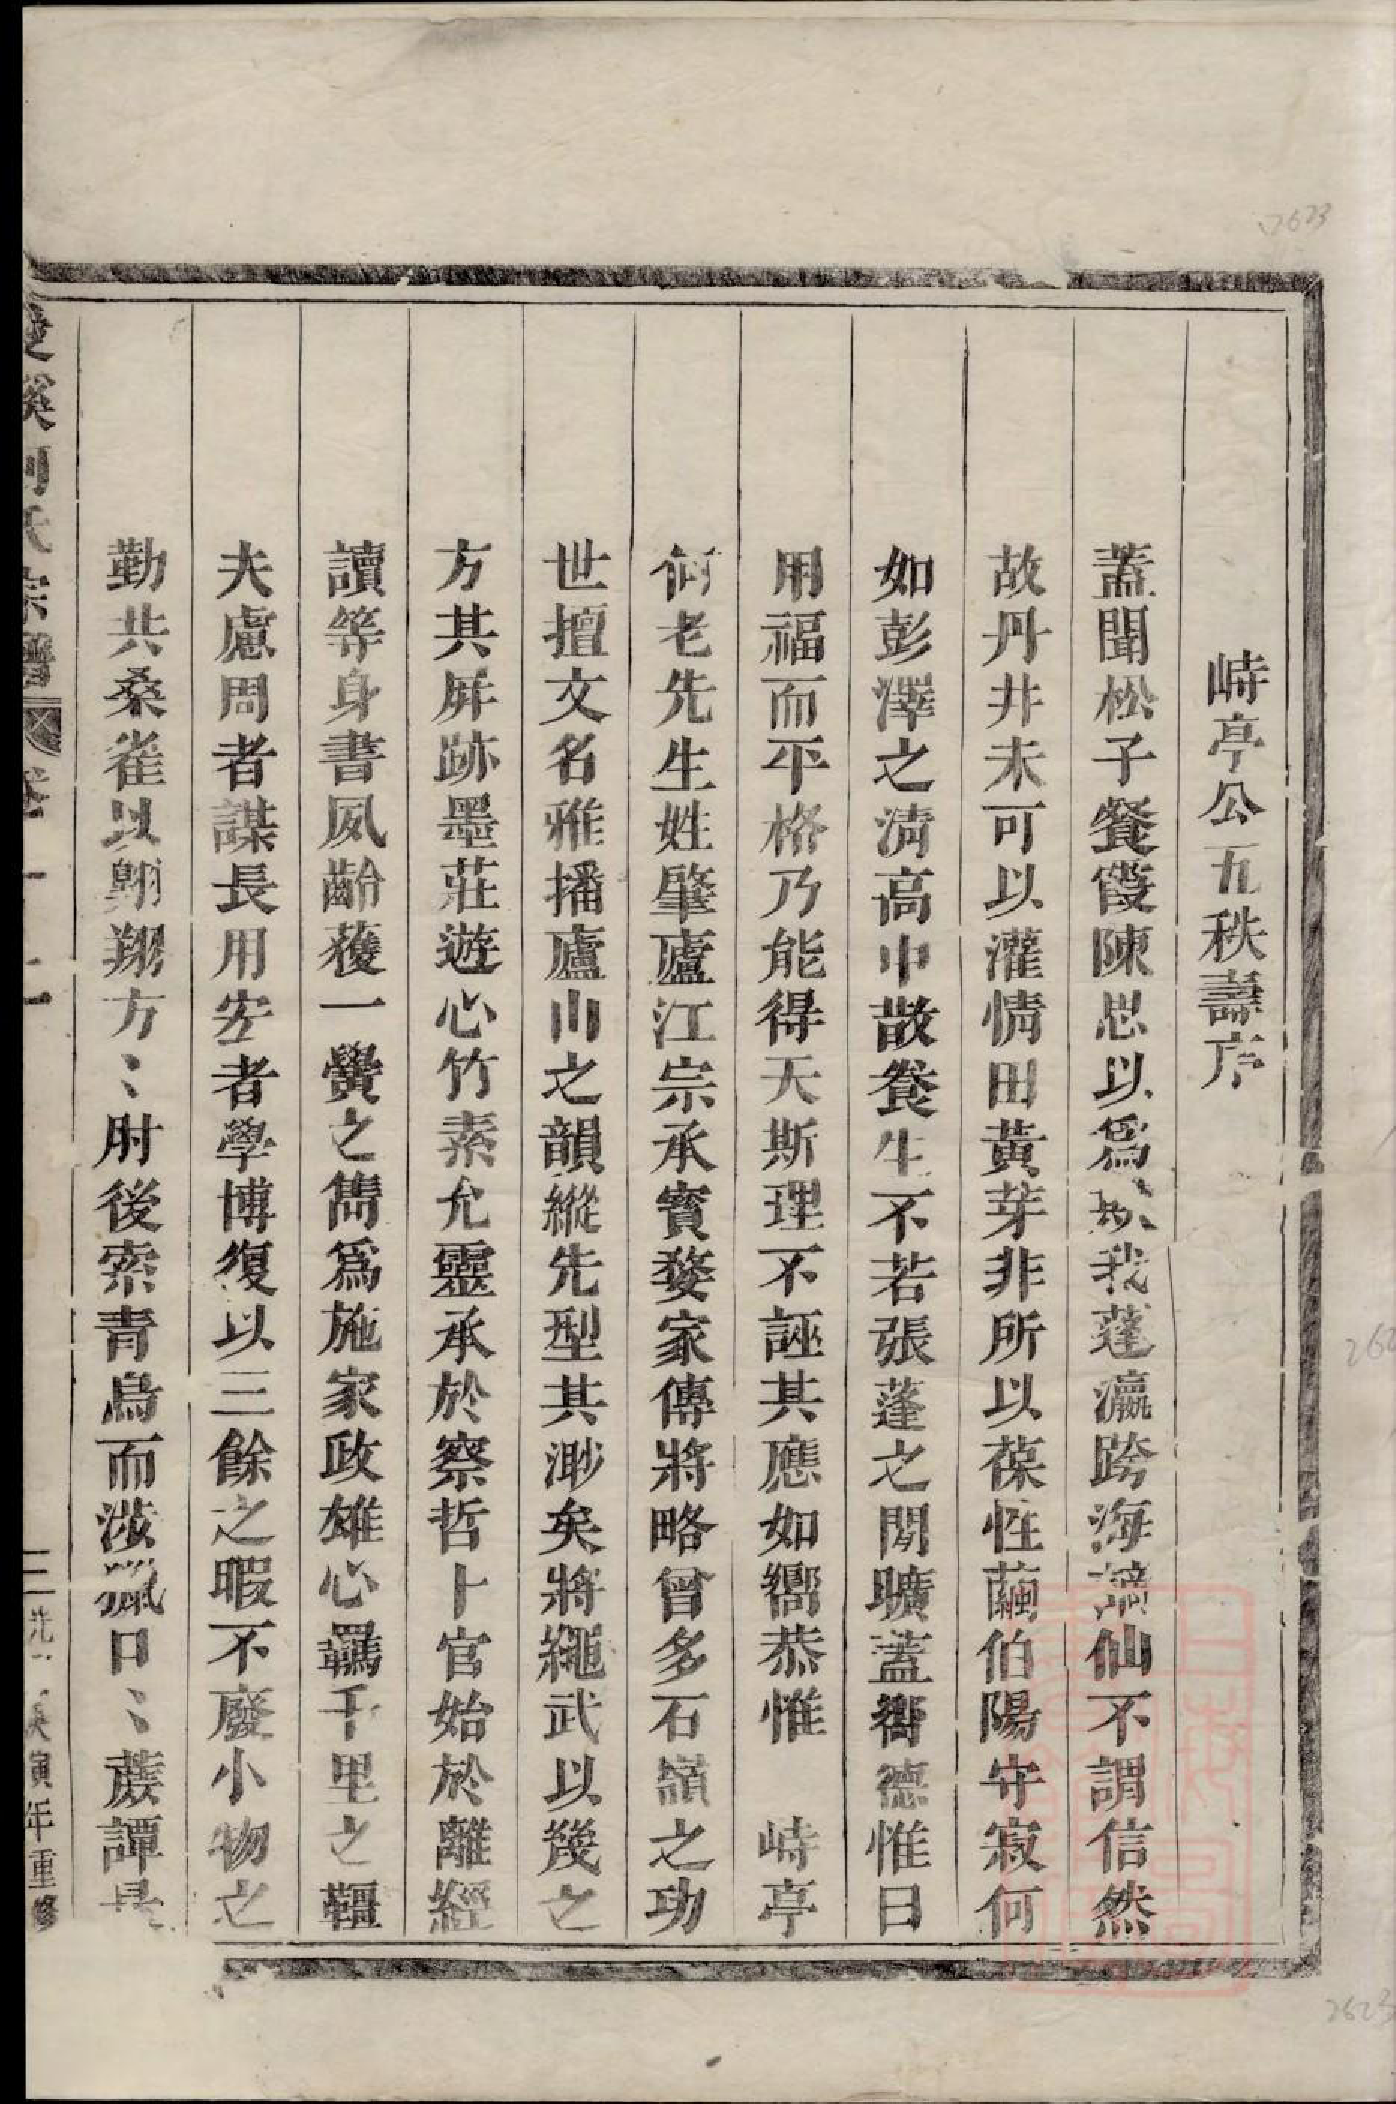 峙亭公五秩壽序
蓋聞松子餐霞陳思以爲欺我蓬瀛跨海謫仙不謂信然
故丹井未可以灌情田黃芽非所以葆性蘭伯陽守寂何
如彭澤之清高中散養生不若張蓬之閒曠蓋嚮德惟日
用福而平格乃能得天斯理不誣其應如嚮恭惟 峙亭
何老先生姓肇廬江宗承寶婺家傳將略曾多石嶺之功
世擅文名雅播廬山之韻縱先型其渺矣將繩武以幾之
方其屏跡墨莊遊心竹素允靈承於察哲卜官始於離經
讀等身書夙齡蒦一黌之雋爲施家政雄心羈千里之韁
夫慮周者謀長用宏者學博復以三餘之暇不廢小物之
勤共桑雀以翺翔方〻肘後索青烏而漁獵口〻蔟譚
溪何氏宗譜
三 演年重修
2623
2623